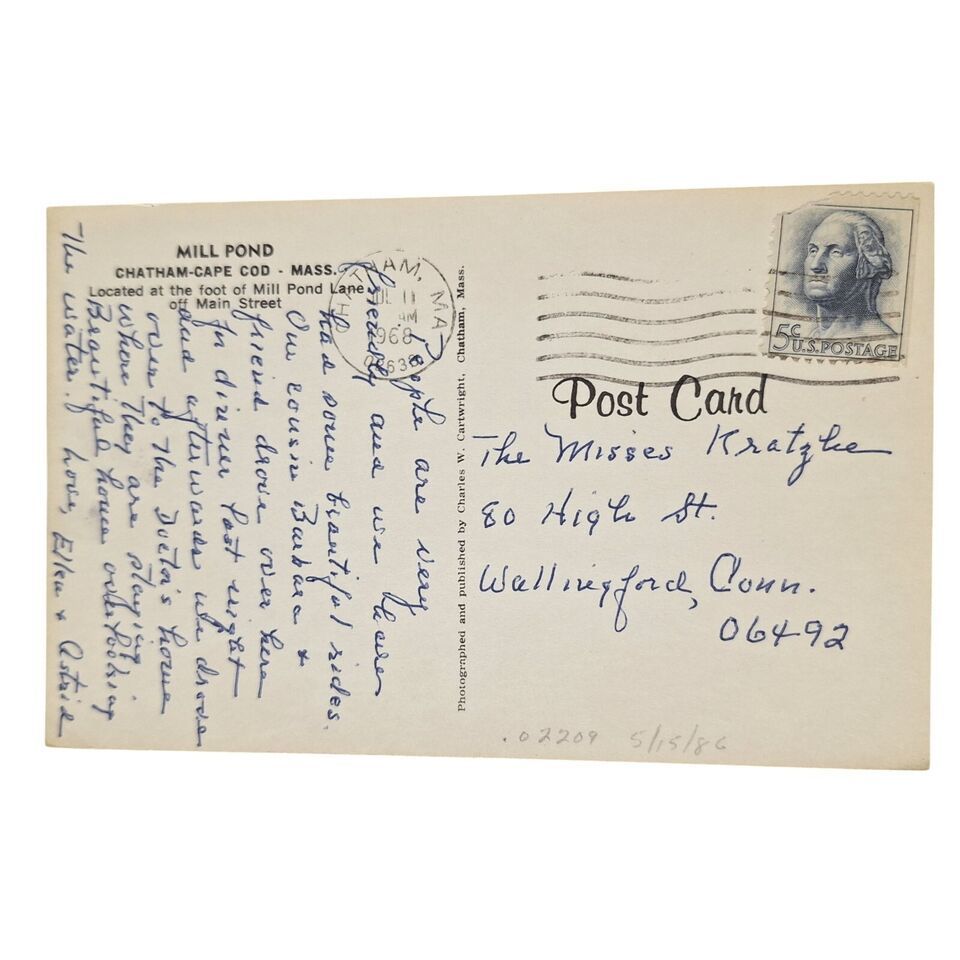 MILL POND
CHATHAM-CAPE COD - MASS.
Located at the foot of Mill Pond Lane,
off Main Street
People are very
friendly and we have
had some beautiful rides.
Our cousin Barbara &
friend drove over here
for dinner last night
and afterwards we drove
over to the Doctor's home
where they are staying.
Beautiful home overlooking
the water. Love, Elka & Astrid
Photographed and published by Charles W. Cartwright, Chatham, Mass.
AM, MA
11
AM
1968
02633
5c
U.S. POSTAGE
Post Card
The Misses Kratzke
80 High St.
Wallingford, Conn.
06492
.02209 5/15/86